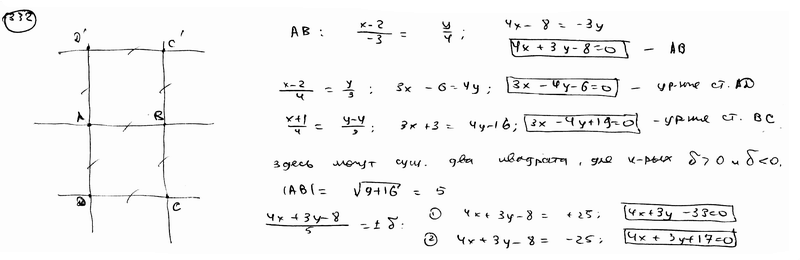 332
D' C'
A B
D C
AB: (x-2)/(-3) = y/4; 4x - 8 = -3y
4x + 3y - 8 = 0 — AB
(x-2)/4 = y/3; 3x - 6 = 4y; 3x - 4y - 6 = 0 - ур-ние ст. AD
(x+1)/4 = (y-4)/3; 3x + 3 = 4y - 16; 3x - 4y + 19 = 0 - ур-ние ст. BC.
здесь могут сущ. два квадрата, для к-рых δ > 0 и δ < 0.
|AB| = √(9+16) = 5
(4x + 3y - 8)/5 = ± δ: ① 4x + 3y - 8 = +25; 4x + 3y - 33 = 0
② 4x + 3y - 8 = -25; 4x + 3y + 17 = 0